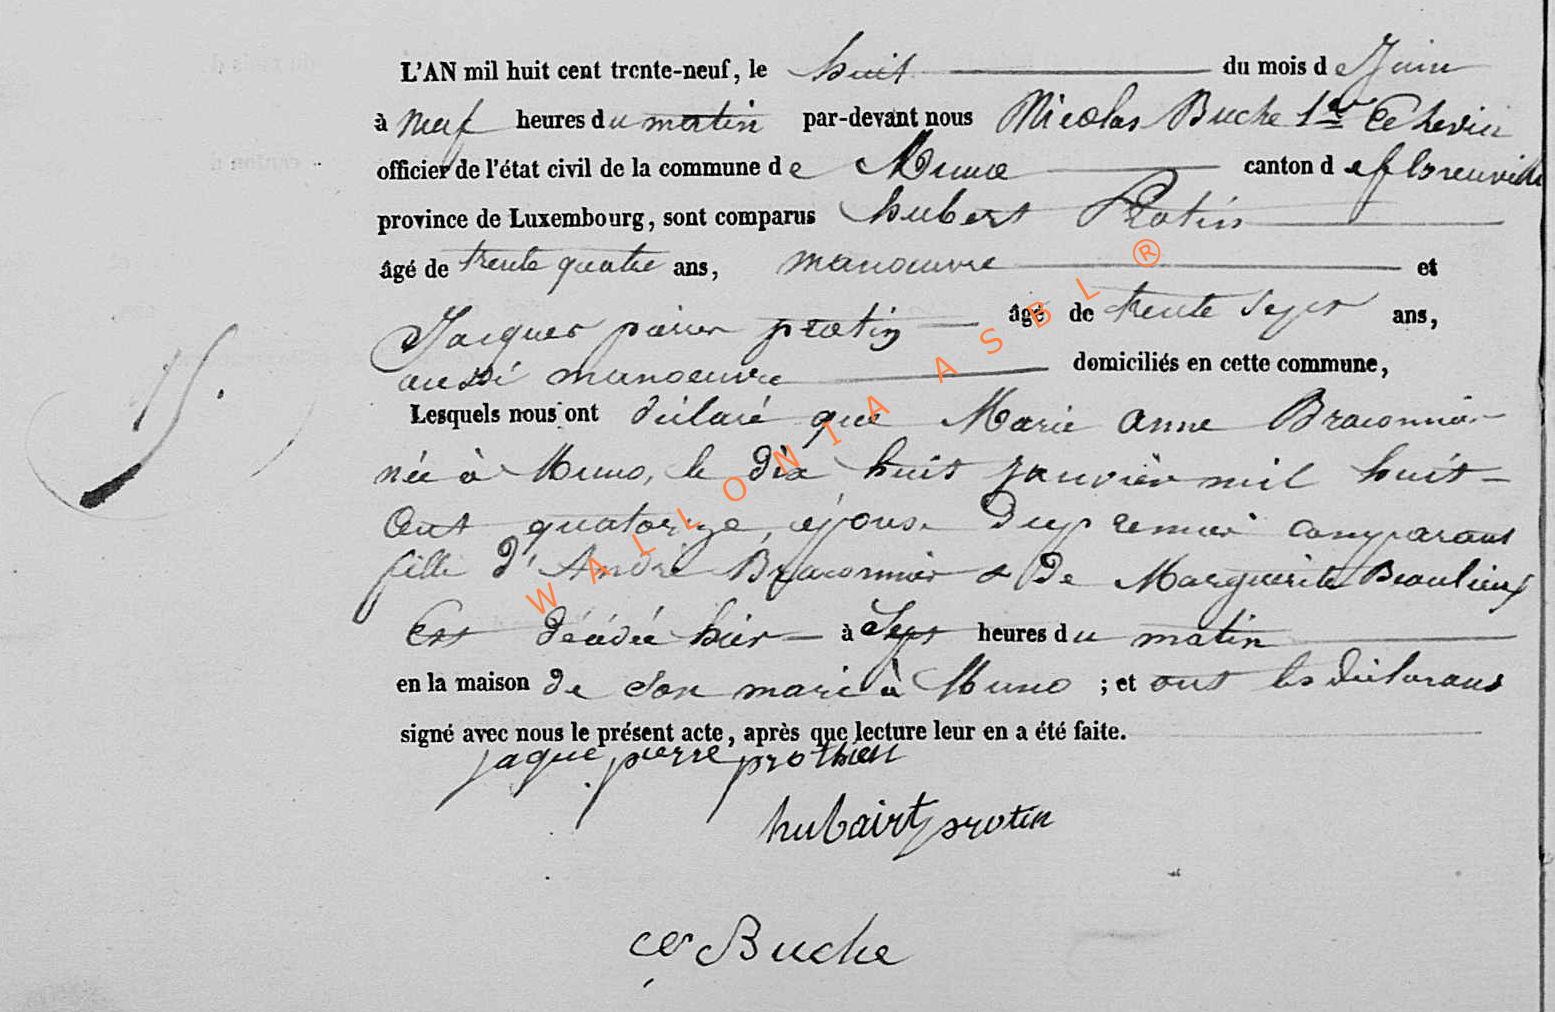 L'AN mil huit cent trente-neuf, le huit du mois de Juin
à neuf heures du matin par-devant nous Nicolas Buche 1er Echevin
officier de l'état civil de la commune de Muno canton de florenville
province de Luxembourg, sont comparus hubert Protin
âgé de trente quatre ans, manoeuvre et
Jacques pierre protin âgé de trente Sept ans,
aussi manoeuvre domiciliés en cette commune,
Lesquels nous ont déclaré que Marie anne Braconnier
née à Muno, le dix huit janvier mil huit-
Cent quatorze, épouse du premier comparant
fille d'André Braconnier & de Marguerite Beaulieux
Est décédée hier à Sept heures du matin
en la maison de son mari à Muno ; et ont les déclarans
signé avec nous le présent acte, après que lecture leur en a été faite.
jaque pierre prothien
hubairt protin
Buche
WALLONIA ASBL ®